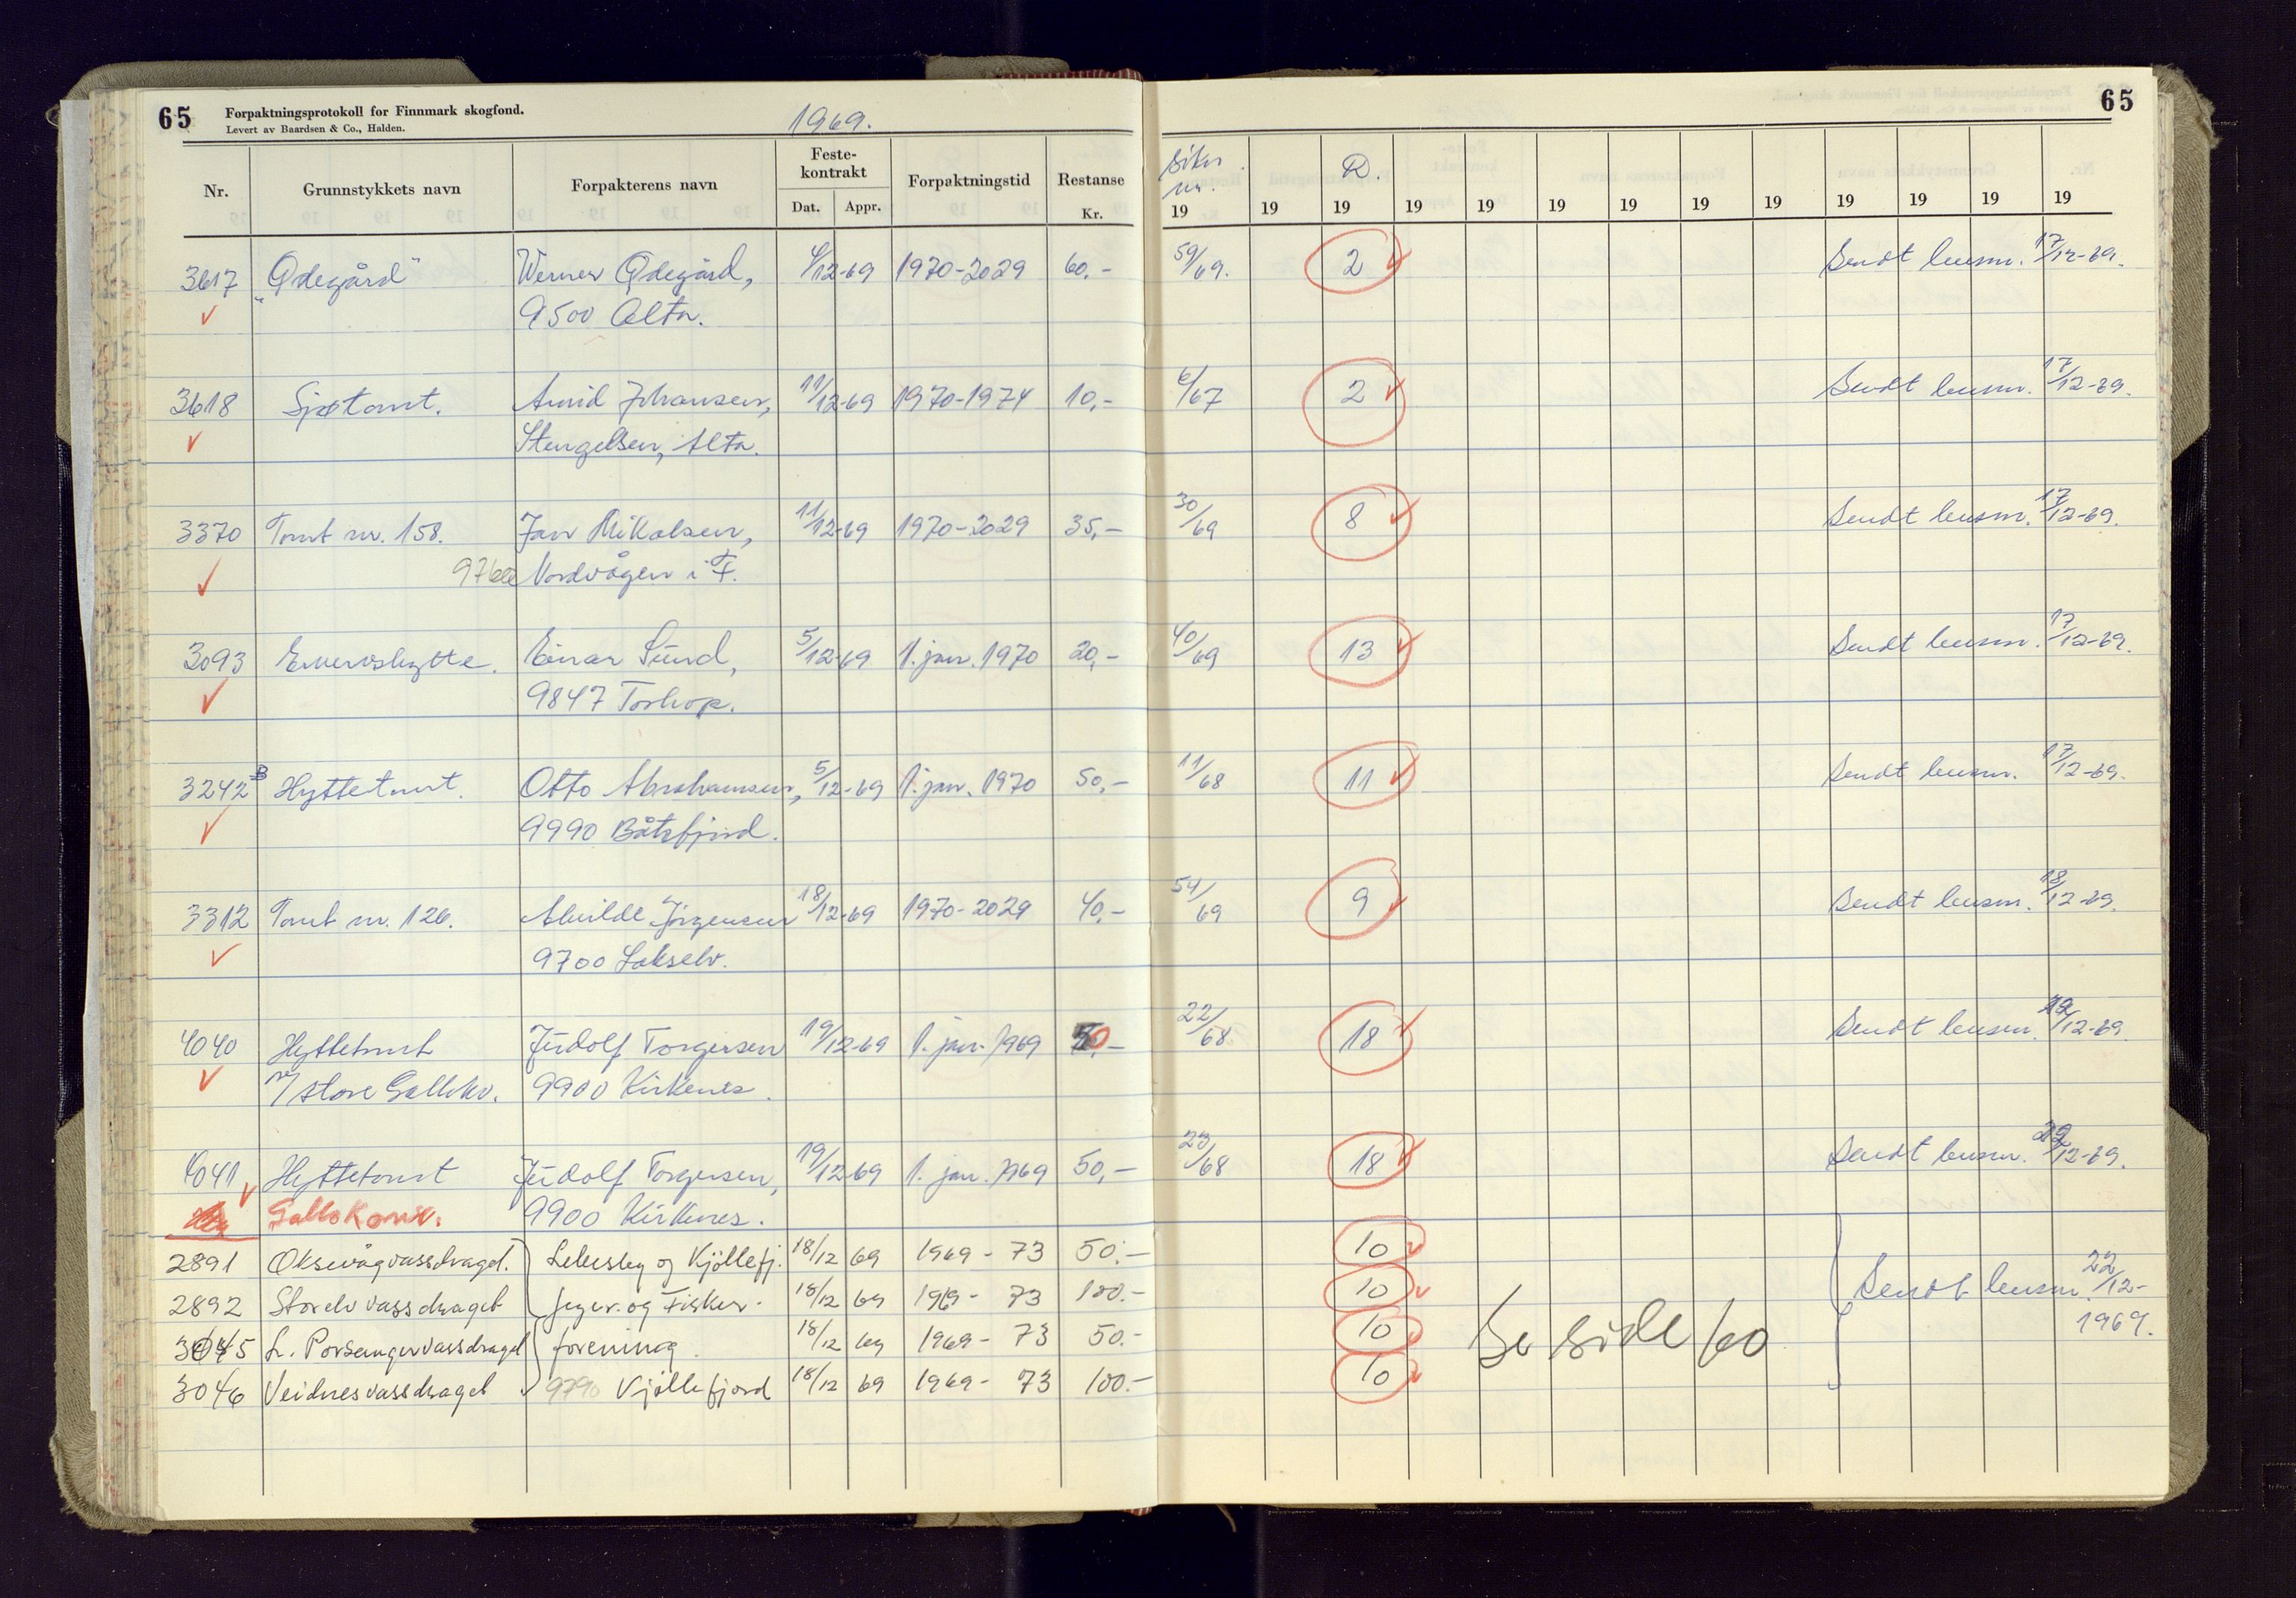 65 Forpaktningsprotokoll for Finnmark skogfond. 1969. 65
Levert av Baardsen & Co., Halden.
Nr. Grunnstykkets navn Forpakterens navn Feste-kontrakt Dat. Appr. Forpaktningstid Restanse Kr. nr. 19 19 D. 19 19 19 19 19 19 19 19 19 19 19
3617 "Ødegård" Werner Ødegård, 4/12-69 1970-2029 60,- 59/69. 2 Sendt lensm. 17/12-69.
9500 Alta.
3618 Sjøtomt. Arvid Johansen, 11/12-69 1970-1974 10,- 6/67 2 Sendt lensm. 17/12-69.
Stengelsen, Alta.
3370 Tomt nr. 158. Jan Mikalsen, 11/12-69 1970-2029 35,- 30/69 8 Sendt lensm. 17/12-69.
Nordvågen i F.
3093 Einar Sund, 5/12-69 1. jan. 1970 20,- 40/69 13 Sendt lensm. 17/12-69.
9847 Torhop.
3242 B Hyttetomt. Otto Abrahamsen, 5/12-69 1. jan. 1970 50,- 11/68 11 Sendt lensm. 17/12-69.
9990 Båtsfjord.
3312 Tomt nr. 126. Alvilde Jørgensen 18/12-69 1970-2029 40,- 54/69 9 Sendt lensm. 18/12-69.
9700 Lakselv.
4040 Hyttetomt Judolf Torgersen 19/12-69 1. jan. 1969 50,- 22/68. 18 Sendt lensm. 22/12-69.
v/ store Gallokv. 9900 Kirkenes.
4041 Hyttetomt Judolf Torgersen, 19/12-69 1. jan. 1969 50,- 23/68 18 Sendt lensm. 22/12-69.
9900 Kirkenes.
2891 Oksevågvassdraget. Lebesby og Kjöllefj. 18/12 69 1969-73 50.- 10
2892 Storelvvassdraget Jeger- og Fisker- 18/12 69 1969-73 100.- 10 Sendt lensm. 22/12-
3045 L. Porsangervassdraget forening 18/12 69 1969-73 50.- 10 Se side 60 1969.
3046 Veidnesvassdraget 9790 Kjöllefjord 18/12 69 1969-73 100.- 10